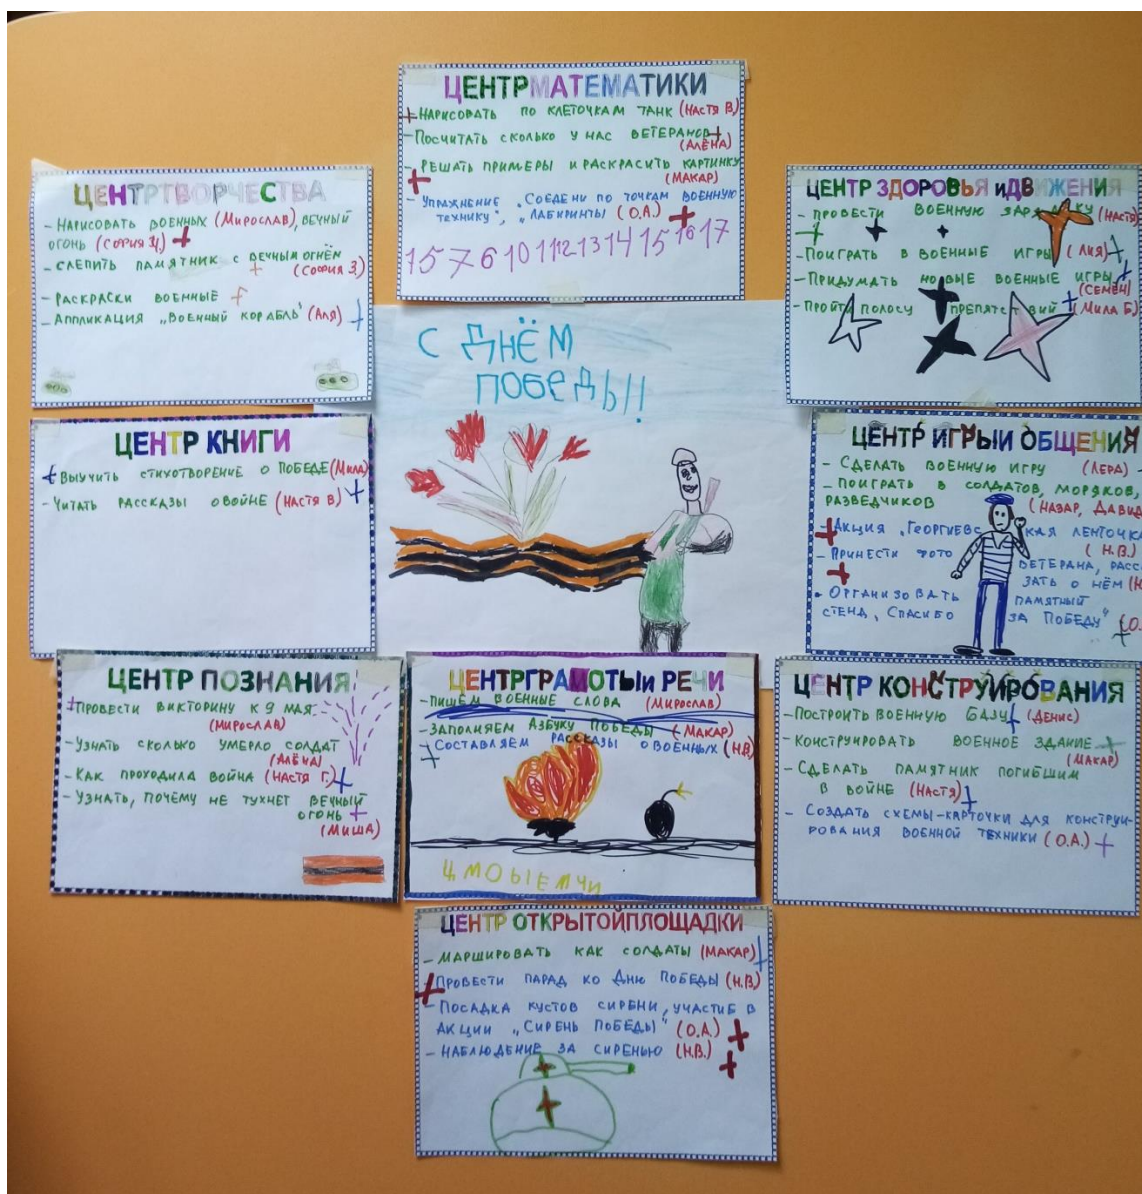 ЦЕНТР МАТЕМАТИКИ
- НАРИСОВАТЬ ПО КЛЕТОЧКАМ ТАНК (НАСТЯ В)
- ПОСЧИТАТЬ СКОЛЬКО У НАС ВЕТЕРАНОВ
(АЛЁНА)
- РЕШАТЬ ПРИМЕРЫ И РАСКРАСИТЬ КАРТИНКУ
(МАКАР)
- УПРАЖНЕНИЕ „СОЕДЕНИ ПО ТОЧКАМ ВОЕННУЮ
ТЕХНИКУ", „ЛАБИРИНТЫ (О.А.)
15 7 6 10 11 12 13 14 15 16 17
ЦЕНТР ТВОРЧЕСТВА
- НАРИСОВАТЬ ВОЕННЫХ (МИРОСЛАВ), ВЕЧНЫЙ
ОГОНЬ (СОФИЯ Ц)
- СЛЕПИТЬ ПАМЯТНИК С ВЕЧНЫМ ОГНЁМ
(СОФИЯ З)
- РАСКРАСКИ ВОЕННЫЕ
- АППЛИКАЦИЯ „ВОЕННЫЙ КОРАБЛЬ" (АЛЯ)
ЦЕНТР ЗДОРОВЬЯ и ДВИЖЕНИЯ
- ПРОВЕСТИ ВОЕННУЮ ЗАРЯДКУ (НАСТЯ)
- ПОИГРАТЬ В ВОЕННЫЕ ИГРЫ (ЛИЯ)
- ПРИДУМАТЬ НОВЫЕ ВОЕННЫЕ ИГРЫ
(СЕМЁН)
- ПРОЙТИ ПОЛОСУ ПРЕПЯТСТВИЙ (МИЛА Б)
С ДНЁМ
ПОБЕДЫ!!
ЦЕНТР КНИГИ
- ВЫУЧИТЬ СТИХОТВОРЕНИЕ О ПОБЕДЕ (МИЛА)
- ЧИТАТЬ РАССКАЗЫ О ВОЙНЕ (НАСТЯ В)
ЦЕНТР ИГРЫ И ОБЩЕНИЯ
- СДЕЛАТЬ ВОЕННУЮ ИГРУ (ЛЕРА)
- ПОИГРАТЬ В СОЛДАТОВ, МОРЯКОВ,
РАЗВЕДЧИКОВ (НАЗАР, ДАВИД
- АКЦИЯ „ГЕОРГИЕВСКАЯ ЛЕНТОЧКА
(Н.В.)
- ПРИНЕСТИ ФОТО ВЕТЕРАНА, РАССКА
ЗАТЬ О НЁМ
- ОРГАНИЗОВАТЬ ПАМЯТНЫЙ
СТЕНД „СПАСИБО ЗА ПОБЕДУ" (О.
ЦЕНТР ПОЗНАНИЯ
- ПРОВЕСТИ ВИКТОРИНУ К 9 МАЯ
(МИРОСЛАВ)
- УЗНАТЬ СКОЛЬКО УМЕРЛО СОЛДАТ
(АЛЁНА)
- КАК ПРОХОДИЛА ВОЙНА (НАСТЯ Г.)
- УЗНАТЬ, ПОЧЕМУ НЕ ТУХНЕТ ВЕЧНЫЙ
ОГОНЬ
(МИША)
ЦЕНТР ГРАМОТЫ и РЕЧИ
- ПИШЕМ ВОЕННЫЕ СЛОВА (МИРОСЛАВ)
- ЗАПОЛНЯЕМ АЗБУКУ ПОБЕДЫ (МАКАР)
- СОСТАВЛЯЕМ РАССКАЗЫ О ВОЕННЫХ (Н.В)
Ц М О Ы Е М Ч И
ЦЕНТР КОНСТРУИРОВАНИЯ
- ПОСТРОИТЬ ВОЕННУЮ БАЗУ (ДЕНИС)
- КОНСТРУИРОВАТЬ ВОЕННОЕ ЗДАНИЕ
(МАКАР)
- СДЕЛАТЬ ПАМЯТНИК ПОГИБШИМ
В ВОЙНЕ (НАСТЯ)
- СОЗДАТЬ СХЕМЫ-КАРТОЧКИ ДЛЯ КОНСТРУИ-
РОВАНИЯ ВОЕННОЙ ТЕХНИКИ (О.А.)
ЦЕНТР ОТКРЫТОЙ ПЛОЩАДКИ
- МАРШИРОВАТЬ КАК СОЛДАТЫ (МАКАР)
- ПРОВЕСТИ ПАРАД КО ДНЮ ПОБЕДЫ (Н.В.)
- ПОСАДКА КУСТОВ СИРЕНИ, УЧАСТИЕ В
АКЦИИ „СИРЕНЬ ПОБЕДЫ" (О.А.)
- НАБЛЮДЕНИЕ ЗА СИРЕНЬЮ (Н.В.)